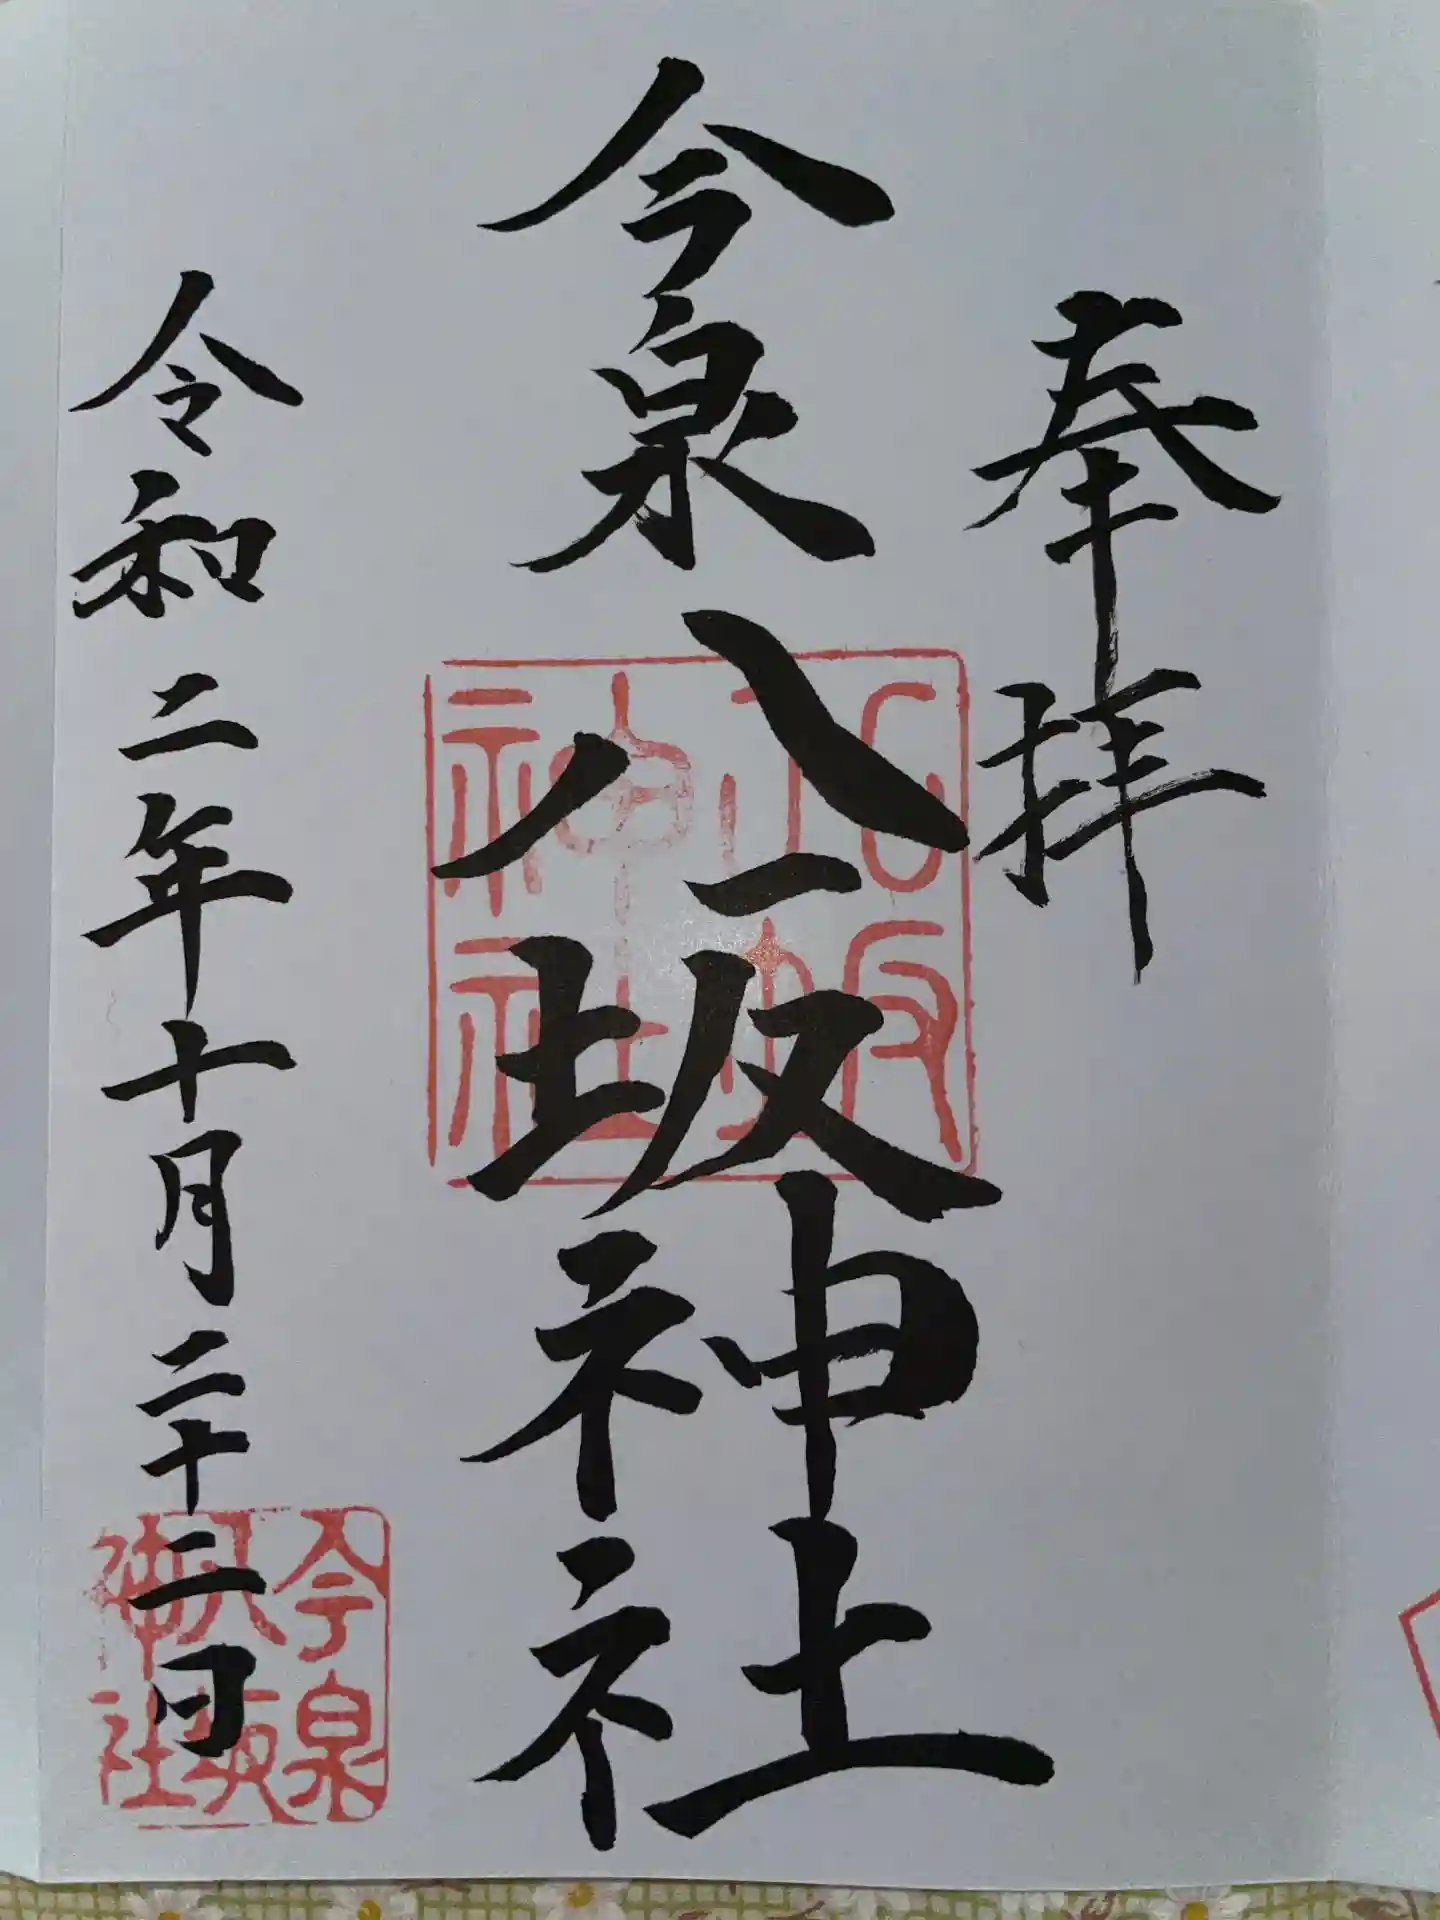 奉拝
今泉八坂神社
八坂
神社
令和二年十月二十二日
今泉
八坂
神社